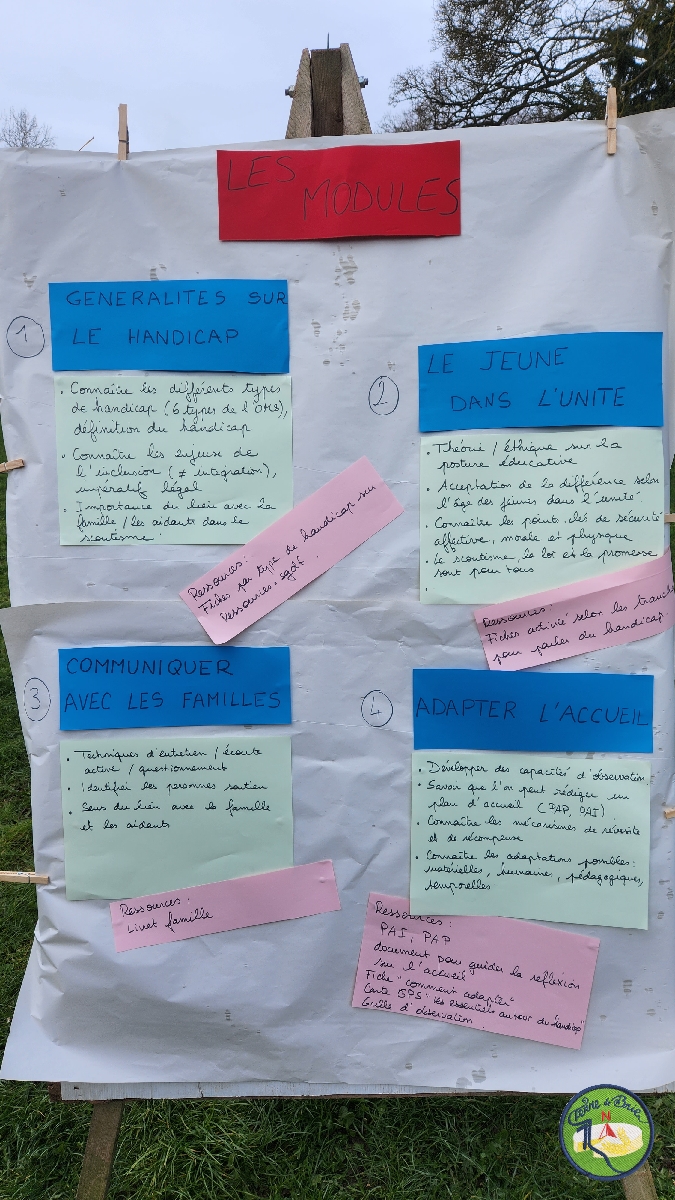 LES
MODULES
1
GENERALITES SUR
LE HANDICAP
• Connaître les différents types
de handicap (6 types de l'OMS),
définition du handicap
• Connaître les enjeux de
l'inclusion (≠ intégration),
impératif légal
• Importance du lien avec la
famille / les aidants dans le
scoutisme
Ressources:
Fiches par type de handicap sur
ressources.sgdf
2
LE JEUNE
DANS L'UNITE
• Théorie / éthique sur la
posture éducative
• Acceptation de la différence selon
l'âge des jeunes dans l'unité.
• Connaître les points clés de sécurité
affective, morale et physique
• Le scoutisme, la loi et la promesse
sont pour tous
•
Ressources:
Fiches activité selon les
pour parler du handicap.
3
COMMUNIQUER
AVEC LES FAMILLES
• Techniques d'entretien / écoute
active / questionnement
• Identifier les personnes soutien
• Sens du lien avec la famille
et les aidants
Ressources:
Livret famille
4
ADAPTER L'ACCUEIL
• Développer des capacités d'observation.
• Savoir que l'on peut rédiger un
plan d'accueil (PAP, PAI)
• Connaître les mécanismes de réussite
et de récompense
• Connaître les adaptations possibles:
matérielles, humaine, pédagogiques,
temporelles
Ressources:
PAI, PAP
document pour guider la réflexion
sur l'accueil
Fiche "comment adapter"
Carte GPS: les essentiels autour du handicap"
Grille d'observation
N